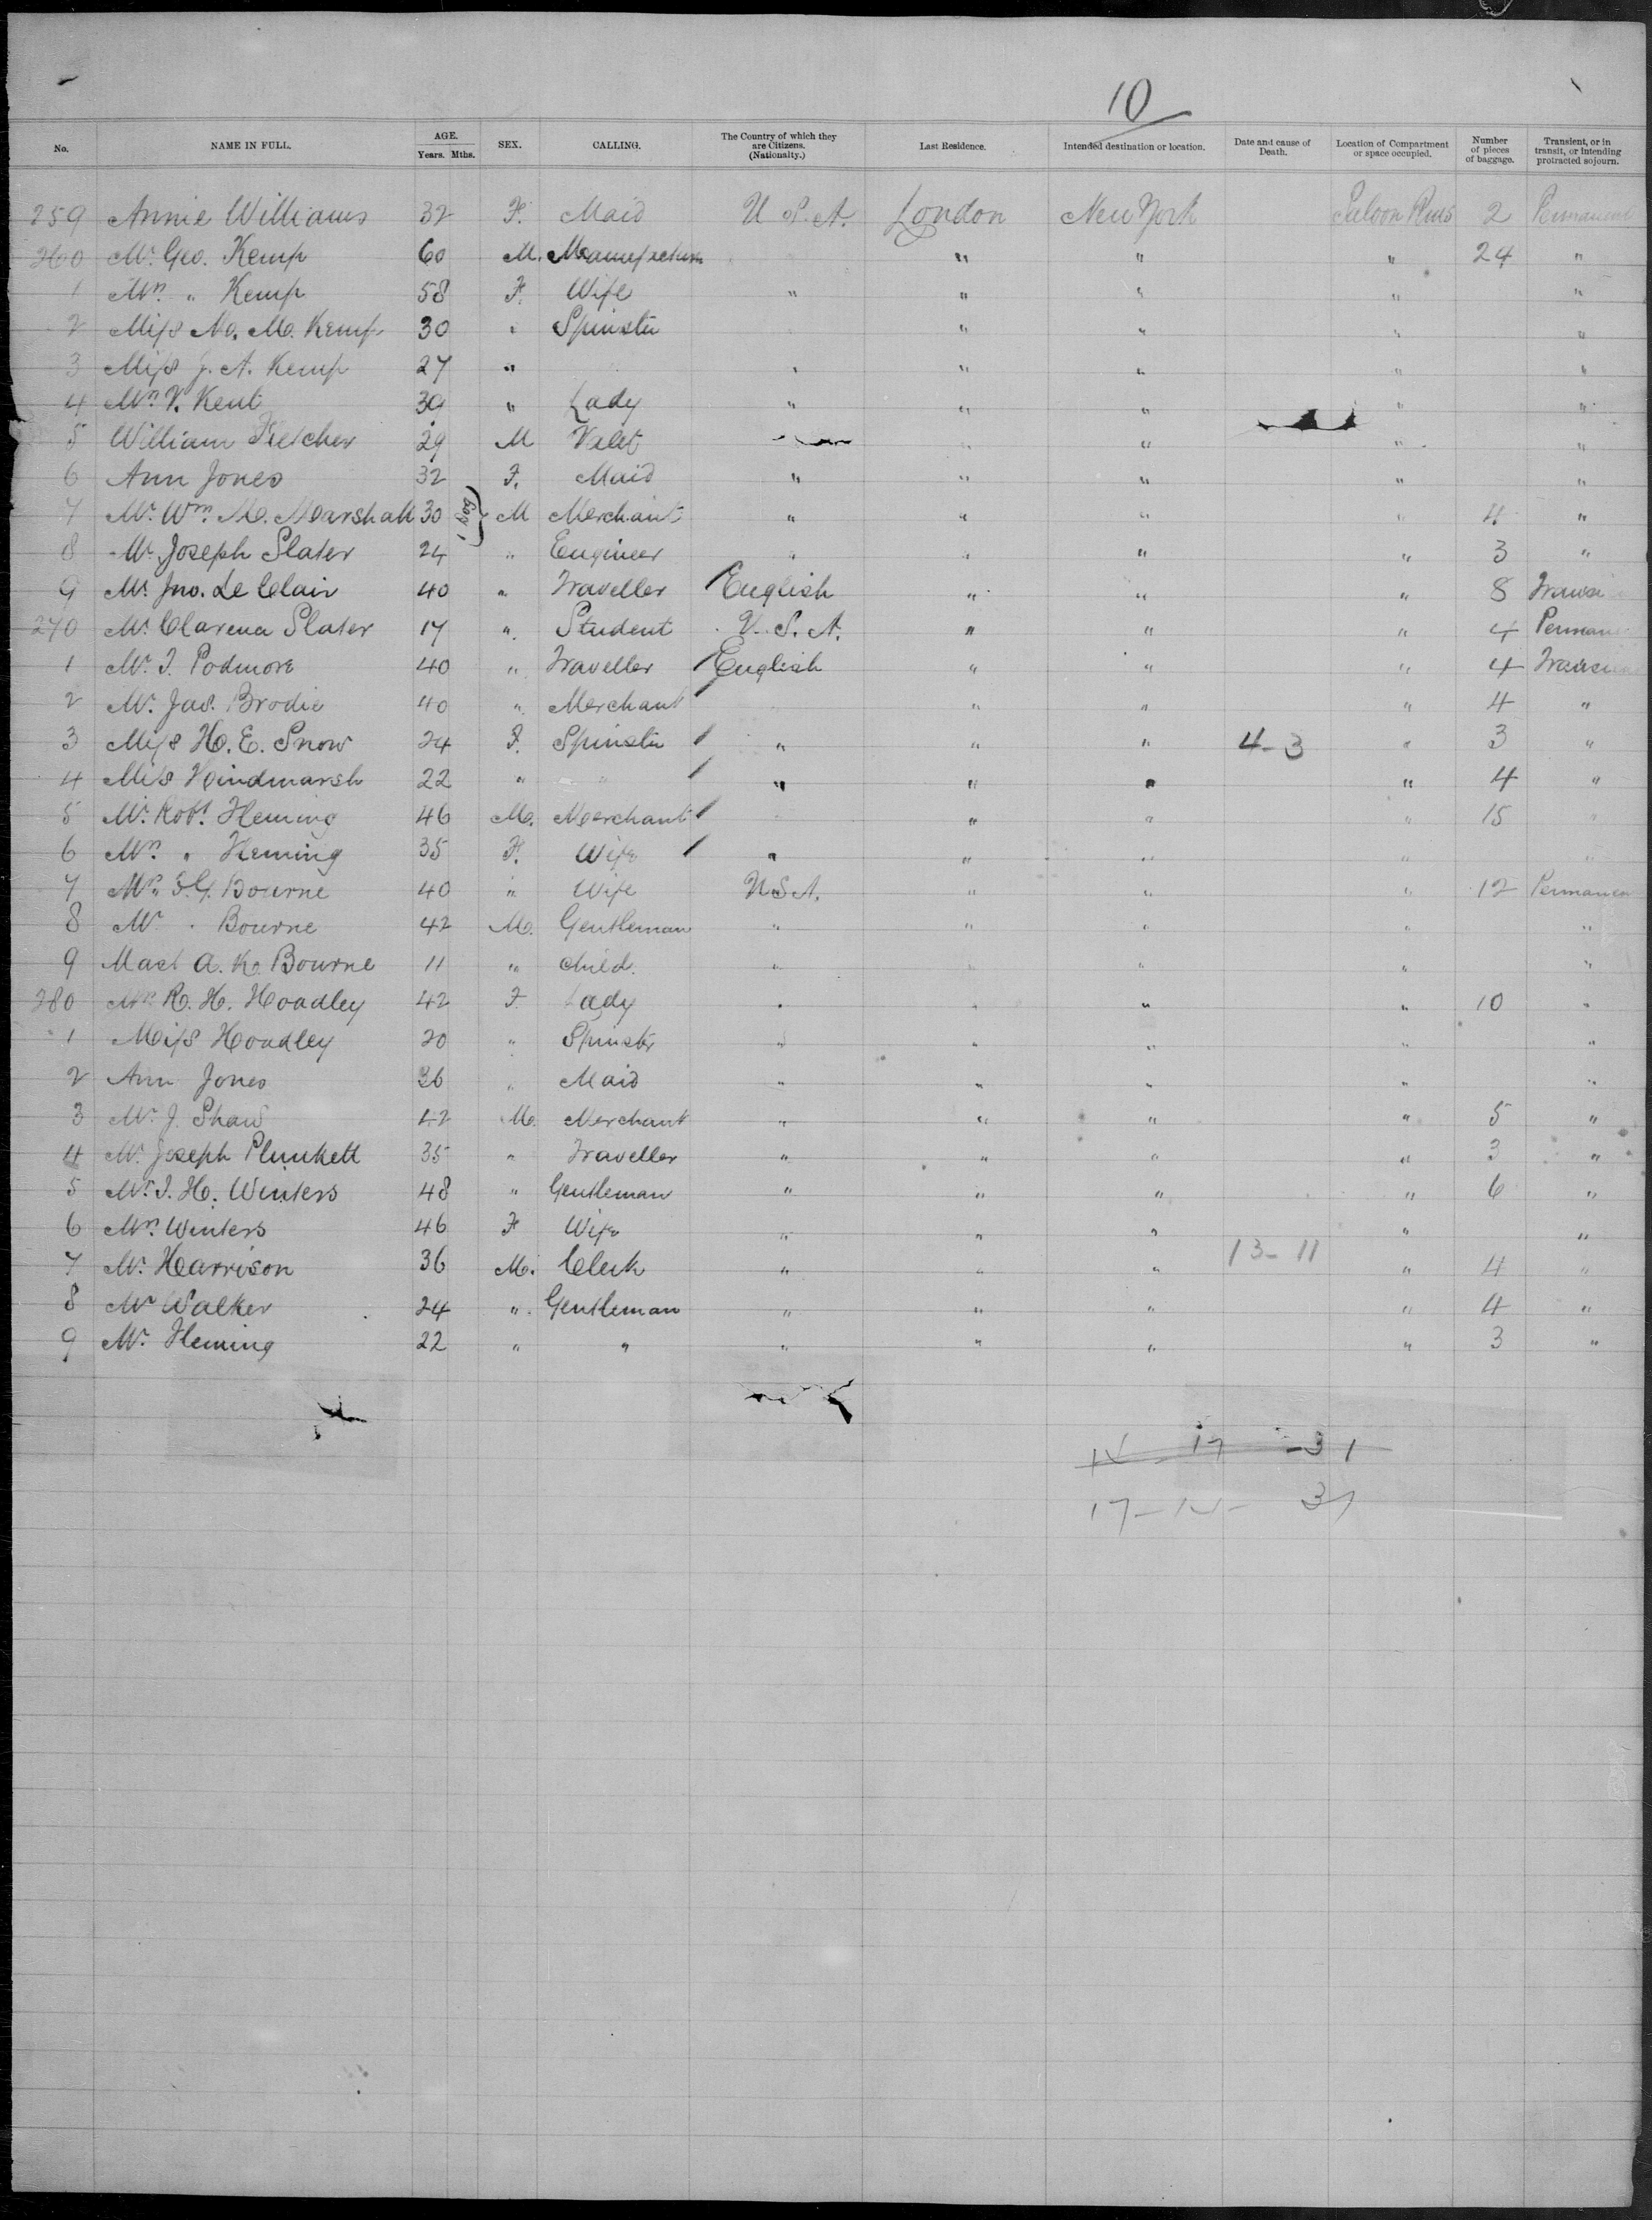 10
No. NAME IN FULL. AGE. Years. Mths. SEX. CALLING. The Country of which they are Citizens. (Nationality.) Last Residence. Intended destination or location. Date and cause of Death. Location of Compartment or space occupied. Number of pieces of baggage. Transient, or in transit, or intending protracted sojourn.
259 Annie Williams 32 F. Maid U.S.A. London New York Saloon Rms 2 Permanent
260 Mr. Geo. Kemp 60 M. " " " 24 "
1 Mrs. " Kemp 58 F. Wife " " " " "
2 Miss M. Kemp 30 " Spinster " " " "
3 Miss J. A. Kemp 27 " " " " " "
4 Mrs. V. Kent 39 " Lady " " " " "
5 William Fletcher 29 M Valet " " " "
6 Ann Jones 32 F. Maid " " " " "
7 Mr. Wm. M. Marshall 30 M Merchant " " " " 4 "
8 Mr. Joseph Slater 24 " Engineer " " " " 3 "
9 Mr. Jno. Le Clair 40 " Traveller English " " " 8
270 Mr. Clarence Slater 17 " Student U.S.A. " " " 4 Perman
1 Mr. T. Podmore 40 " Traveller English " " " 4
2 Mr. Jas. Brodie 40 " Merchant " " " 4 "
3 Miss H. E. Snow 24 F. Spinster " " " 4-3 " 3 "
4 Miss Hindmarsh 22 " " " " " " 4 "
5 Mr. Robt. Fleming 46 M. Merchant " " " 15 "
6 Mrs. " Fleming 35 F. Wife " " " " "
7 Mrs. F. G. Bourne 40 " Wife U.S.A. " " " 12 Permanen
8 Mr. " Bourne 42 M. Gentleman " " " " "
9 Mast A. K. Bourne 11 " child. " " " " "
280 Mrs. R. H. Hoadley 42 F Lady " " " " 10 "
1 Miss Hoadley 20 " Spinster " " " " "
2 Ann Jones 36 " Maid " " " " "
3 Mr. J. Shaw 42 M. Merchant " " " " 5 "
4 Mr. Joseph Plunkett 35 " Traveller " " " " 3 "
5 Mr. T. H. Winters 48 " Gentleman " " " " 6 "
6 Mrs. Winters 46 F Wife " " " " "
7 Mr. Harrison 36 M. Clerk " " " 13-11 " 4 "
8 Mr Walker 24 " Gentleman " " " " 4 "
9 Mr. Fleming 22 " " " " " " 3 "
17 - 31
17 - 31